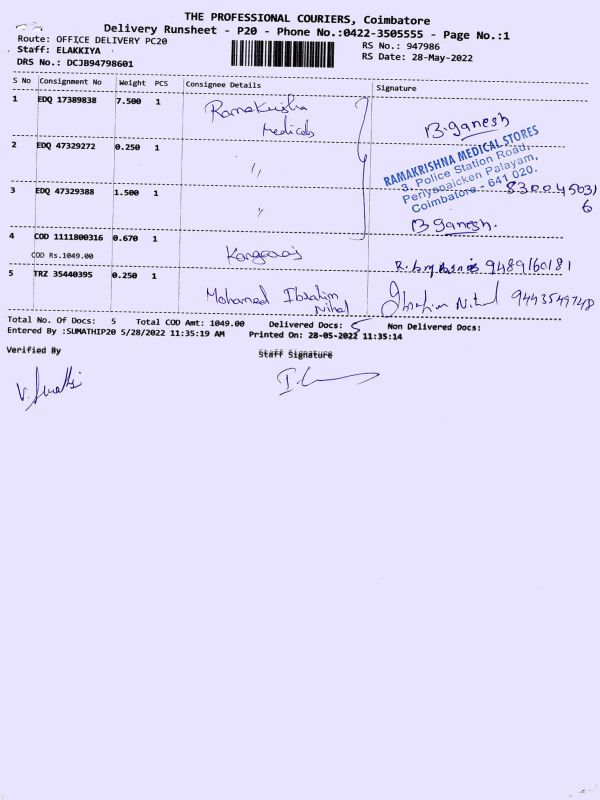 THE PROFESSIONAL COURIERS, Coimbatore
Delivery Runsheet - P20 - Phone No.:0422-3505555 - Page No.:1
Route: OFFICE DELIVERY PC20 RS No.: 947986
Staff: ELAKKIYA RS Date: 28-May-2022
DRS No.: DCJB94798601
S No Consignment No Weight PCS Consignee Details Signature
1 EDQ 17389838 7.500 1 Ramakrisha
Medicals B.ganesh
2 EDQ 47329272 0.250 1 "
RAMAKRISHNA MEDICAL STORES
3, Police Station Road,
Periyanaicken Palayam,
Coimbatore - 641 020.
3 EDQ 47329388 1.500 1 " 830045031
6
B ganesh.
4 COD 1111800316 0.670 1 Kangaraj
COD Rs.1049.00 9489160181
5 TRZ 35440395 0.250 1 Mohamed Ibrahim
Nihal Ibrahim Nihal 9443549748
Total No. Of Docs: 5 Total COD Amt: 1049.00 Delivered Docs: 5 Non Delivered Docs:
Entered By :SUMATHIP20 5/28/2022 11:35:19 AM Printed On: 28-05-2022 11:35:14
Verified By Staff Signature